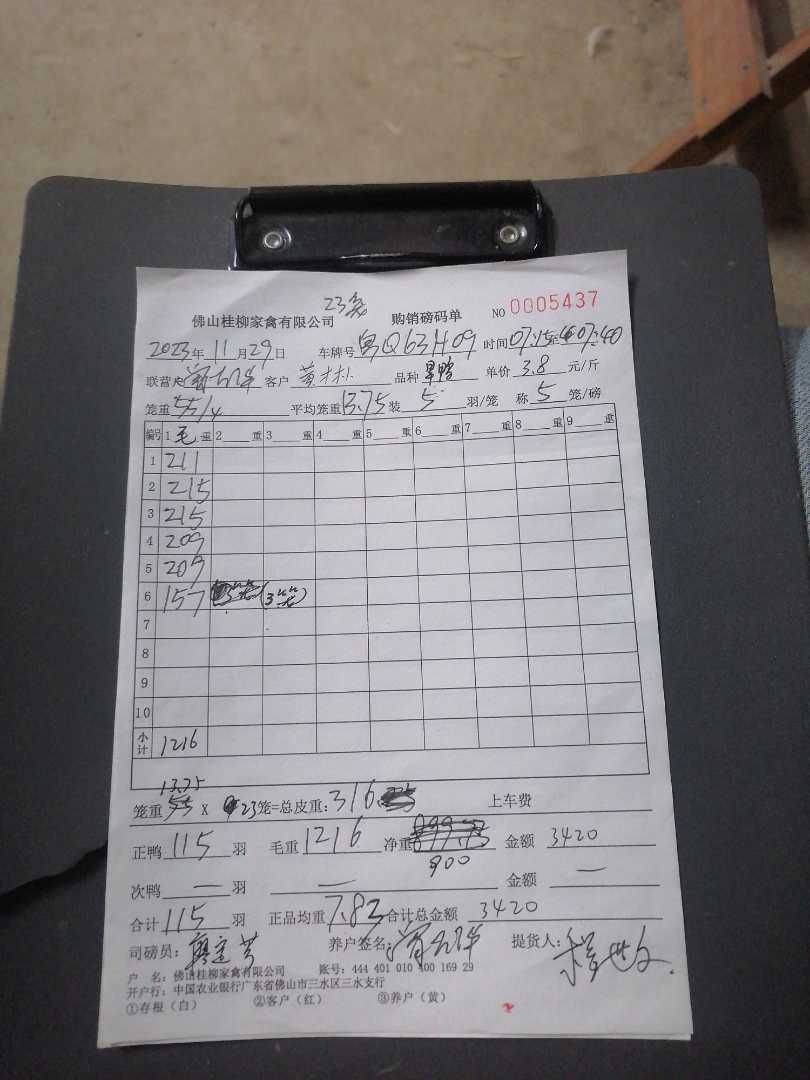 23笼
佛山桂柳家禽有限公司 购销磅码单 NO 0005437
2023年 11月29日 车牌号 粤Q63H09 时间07:15至07:40
联营户 客户 黄林 品种 单价 3.8 元/斤
笼重 55/4 平均笼重13.75装 5 羽/笼 称 5 笼/磅
编号 1 毛 重 2 重 3 重 4 重 5 重 6 重 7 重 8 重 9 重
1 211
2 215
3 215
4 209
5 209
6 157
7
8
9
10
小计 1216
13.75
笼重 X 23笼=总皮重:316 上车费
正鸭 115 羽 毛重 1216 净重 金额 3420
900
次鸭 — 羽 — 金额 —
合计 115 羽 正品均重 7.83 合计总金额 3420
司磅员: 养户签名: 提货人:
户 名: 佛山桂柳家禽有限公司 账号: 444 401 010 400 169 29
开户行: 中国农业银行广东省佛山市三水区三水支行
①存根(白) ②客户(红) ③养户(黄)